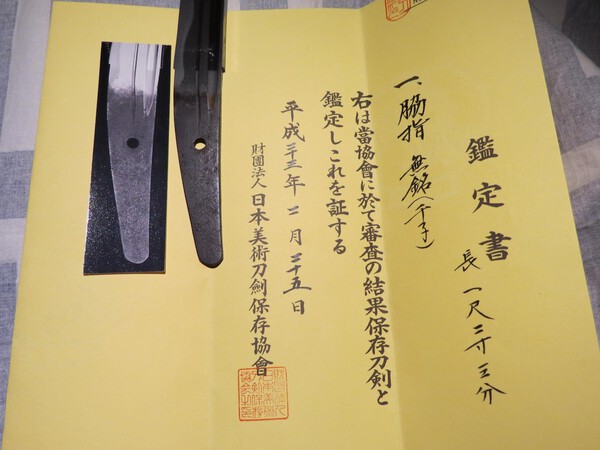 鑑定書
長 一尺二寸五分
一、脇指 無銘(千子)
右は當協會に於て審査の結果保存刀剣と
鑑定しこれを証する
平成二十三年二月二十五日
財團法人日本美術刀劍保存協會